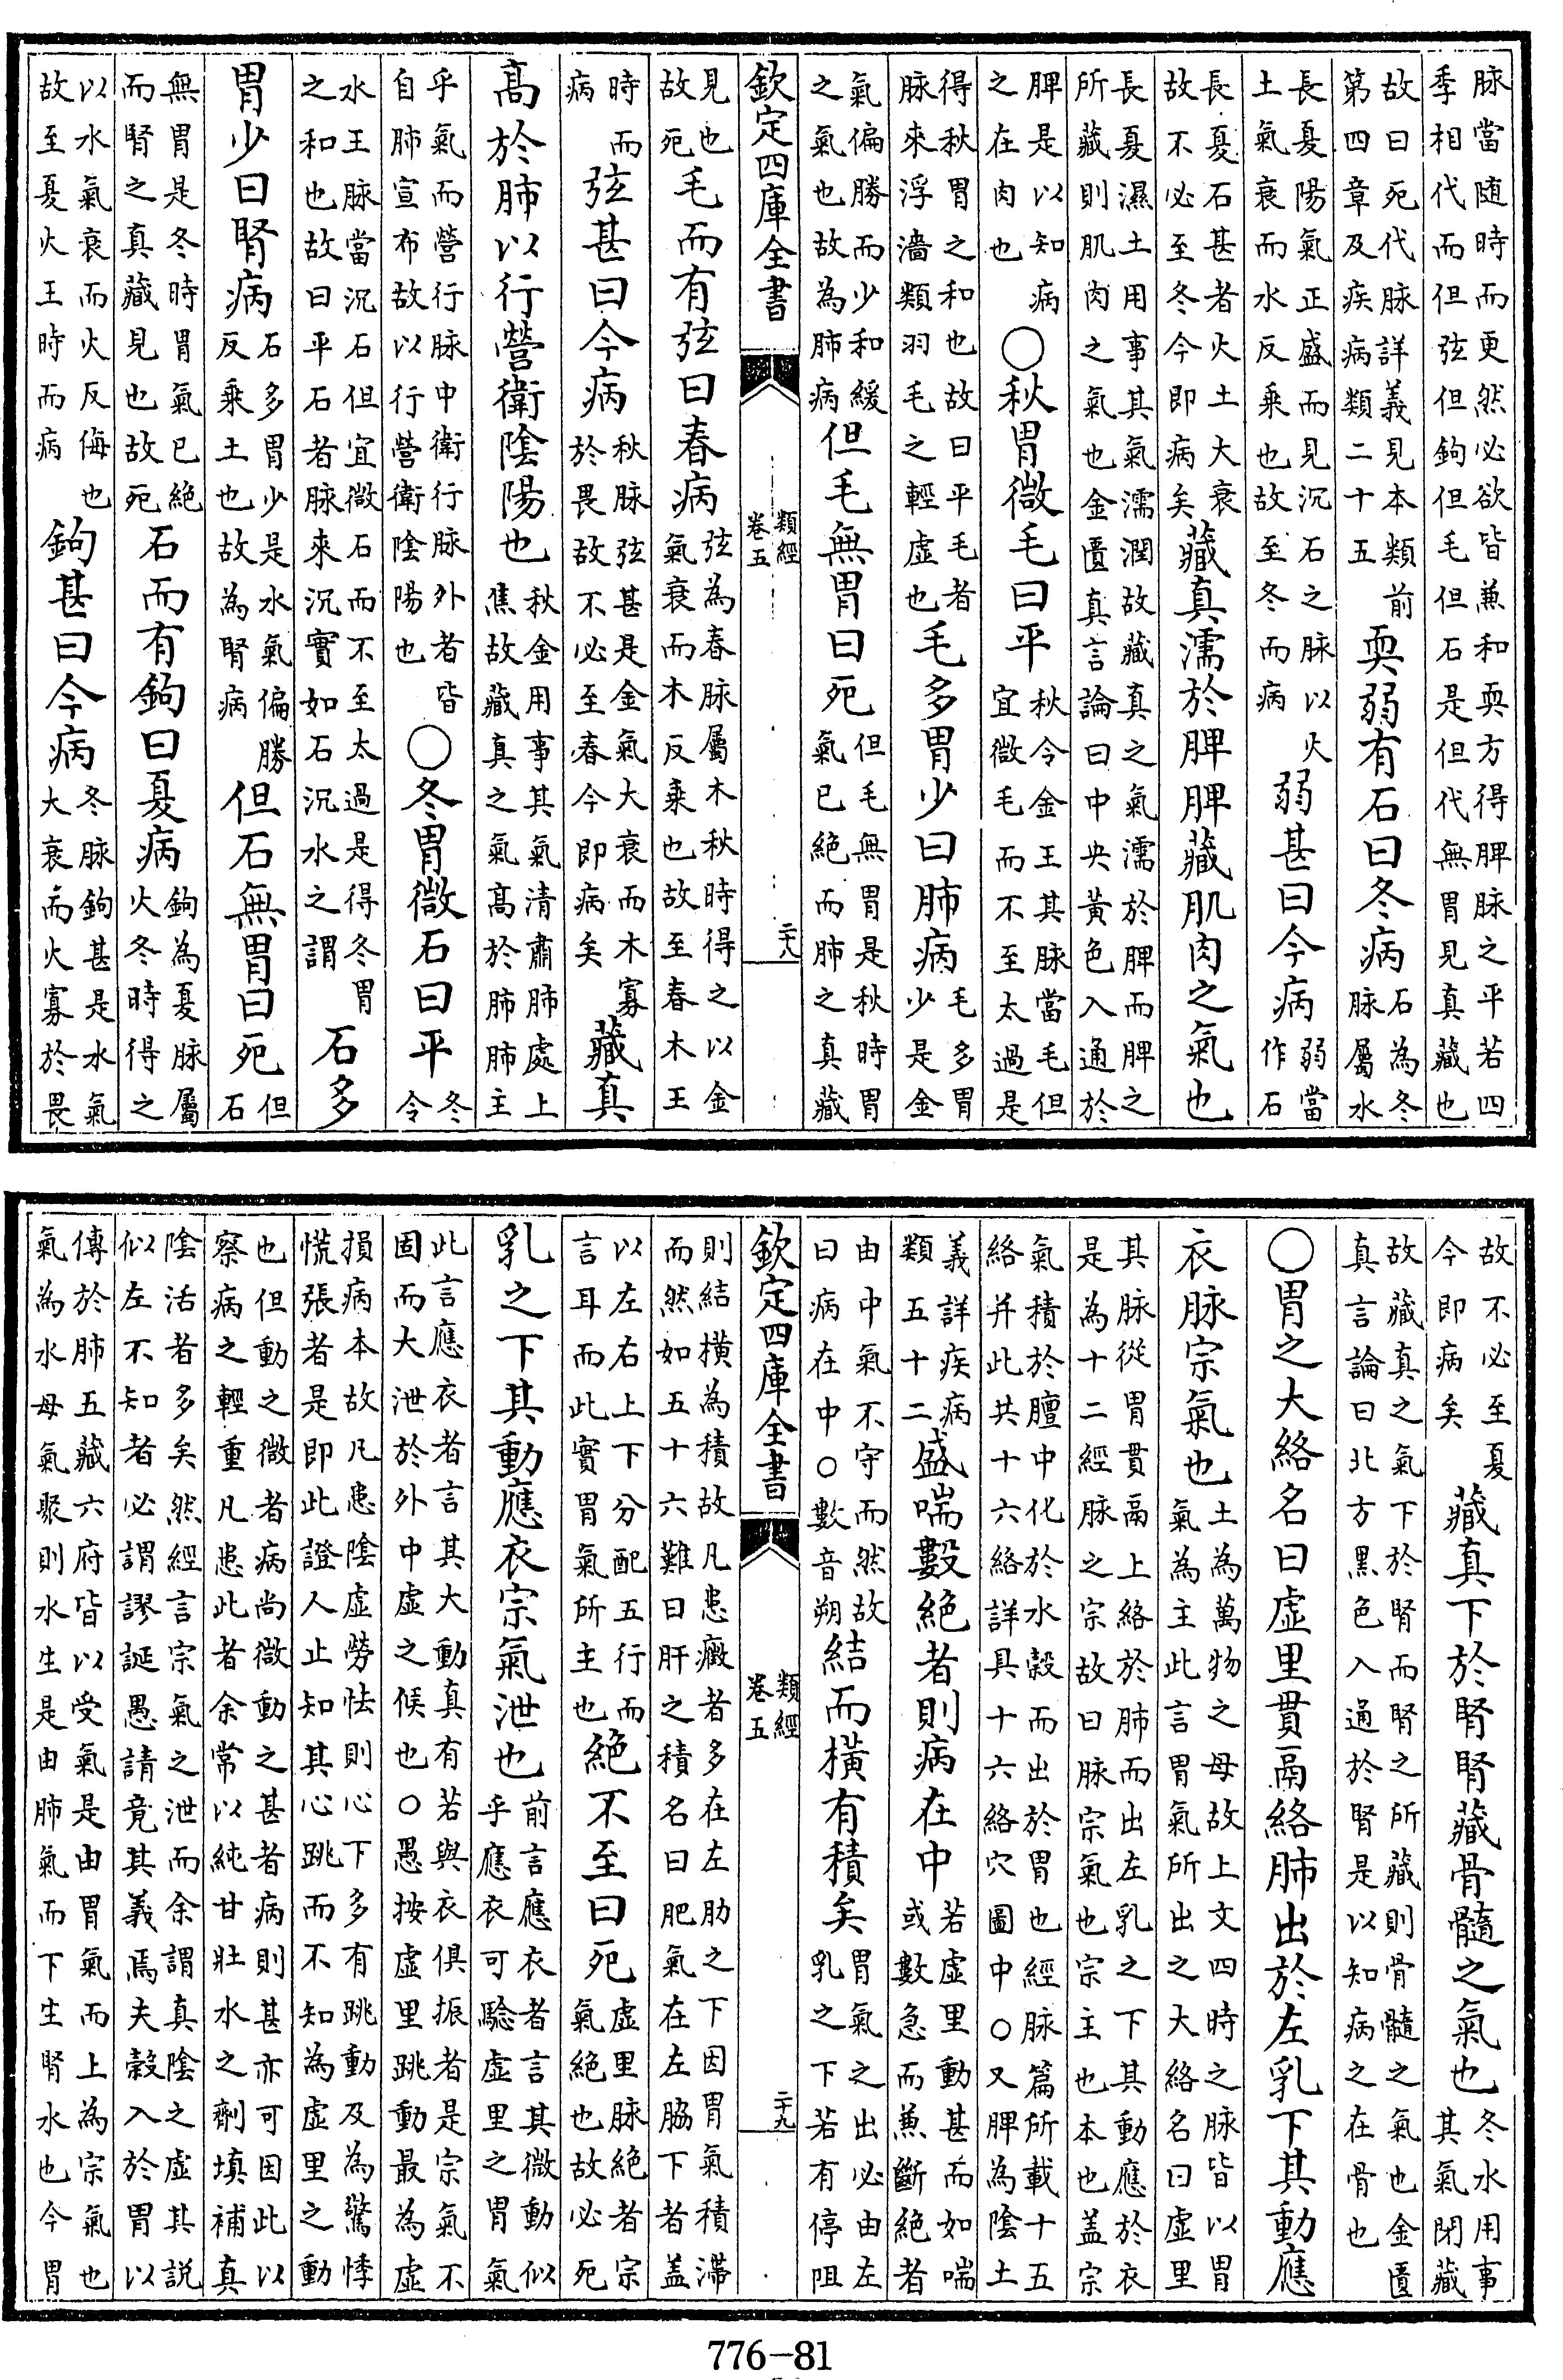 脉當随時而更然必欲皆兼和耎方得脾脉之平若四
季相代而但弦但鉤但毛但石是但代無胃見真藏也
故曰死代脉詳義見本類前
第四章及疾病類二十五
耎弱有石曰冬病
石為冬
脉屬水
長夏陽氣正盛而見沉石之脉以火
土氣衰而水反乘也故至冬而病
弱甚曰今病
弱當
作石
長夏石甚者火土大衰
故不必至冬今即病矣
藏真濡於脾脾藏肌肉之氣也
長夏濕土用事其氣濡潤故藏真之氣濡於脾而脾之
所藏則肌肉之氣也金匱真言論曰中央黃色入通於
脾是以知病
之在肉也
〇秋胃微毛曰平
秋令金王其脉當毛但
宜微毛而不至太過是
得秋胃之和也故曰平毛者
脉來浮濇類羽毛之輕虛也
毛多胃少曰肺病
毛多胃
少是金
氣偏勝而少和緩
之氣也故為肺病
但毛無胃曰死
但毛無胃是秋時胃
氣已絕而肺之真藏
欽定四庫全書
類經
卷五
二十八
見也
故死
毛而有弦曰春病
弦為春脉屬木秋時得之以金
氣衰而木反乘也故至春木王
時而
病
弦甚曰今病
秋脉弦甚是金氣大衰而木寡
於畏故不必至春今即病矣
藏真
髙於肺以行營衛陰陽也
秋金用事其氣清肅肺處上
焦故藏真之氣髙於肺肺主
乎氣而營行脉中衛行脉外者皆
自肺宣布故以行營衛陰陽也
〇冬胃微石曰平
冬
令
水王脉當沉石但宜微石而不至太過是得冬胃
之和也故曰平石者脉來沉實如石沉水之謂
石多
胃少曰腎病
石多胃少是水氣偏勝
反乘土也故為腎病
但石無胃曰死
但
石
無胃是冬時胃氣已絕
而腎之真藏見也故死
石而有鉤曰夏病
鉤為夏脉屬
火冬時得之
以水氣衰而火反侮也
故至夏火王時而病
鉤甚曰今病
冬脉鉤甚是水氣
大衰而火寡於畏
故不必至夏
今即病矣
藏真下於腎腎藏骨髓之氣也
冬水用事
其氣閉藏
故藏真之氣下於腎而腎之所藏則骨髓之氣也金匱
真言論曰北方黑色入通於腎是以知病之在骨也
〇胃之大絡名曰虛里貫鬲絡肺出於左乳下其動應
衣脉宗氣也
土為萬物之母故上文四時之脉皆以胃
氣為主此言胃氣所出之大絡名曰虛里
其脉從胃貫鬲上絡於肺而出左乳之下其動應於衣
是為十二經脉之宗故曰脉宗氣也宗主也本也蓋宗
氣積於膻中化於水穀而出於胃也經脉篇所載十五
絡并此共十六絡詳具十六絡穴圖中〇又脾為陰土
義詳疾病
類五十二
盛喘數絕者則病在中
若虛里動甚而如喘
或數急而兼斷絕者
由中氣不守而然故
曰病在中〇數音朔
結而橫有積矣
胃氣之出必由左
乳之下若有停阻
欽定四庫全書
類經
卷五
二十九
則結橫為積故凡患癥者多在左肋之下因胃氣積滯
而然如五十六難曰肝之積名曰肥氣在左脇下者蓋
以左右上下分配五行而
言耳而此實胃氣所主也
絕不至曰死
虛里脉絕者宗
氣絕也故必死
乳之下其動應衣宗氣泄也
前言應衣者言其微動似
乎應衣可驗虛里之胃氣
此言應衣者言其大動真有若與衣俱振者是宗氣不
固而大泄於外中虛之候也〇愚按虛里跳動最為虛
損病本故凡患陰虛勞怯則心下多有跳動及為驚悸
慌張者是即此證人止知其心跳而不知為虛里之動
也但動之微者病尚微動之甚者病則甚亦可因此以
察病之輕重凡患此者余常以純甘壯水之劑填補真
陰活者多矣然經言宗氣之泄而余謂真陰之虛其説
似左不知者必謂謬誕愚請竟其義焉夫穀入於胃以
傳於肺五藏六府皆以受氣是由胃氣而上為宗氣也
氣為水母氣聚則水生是由肺氣而下生腎水也今胃
776-81